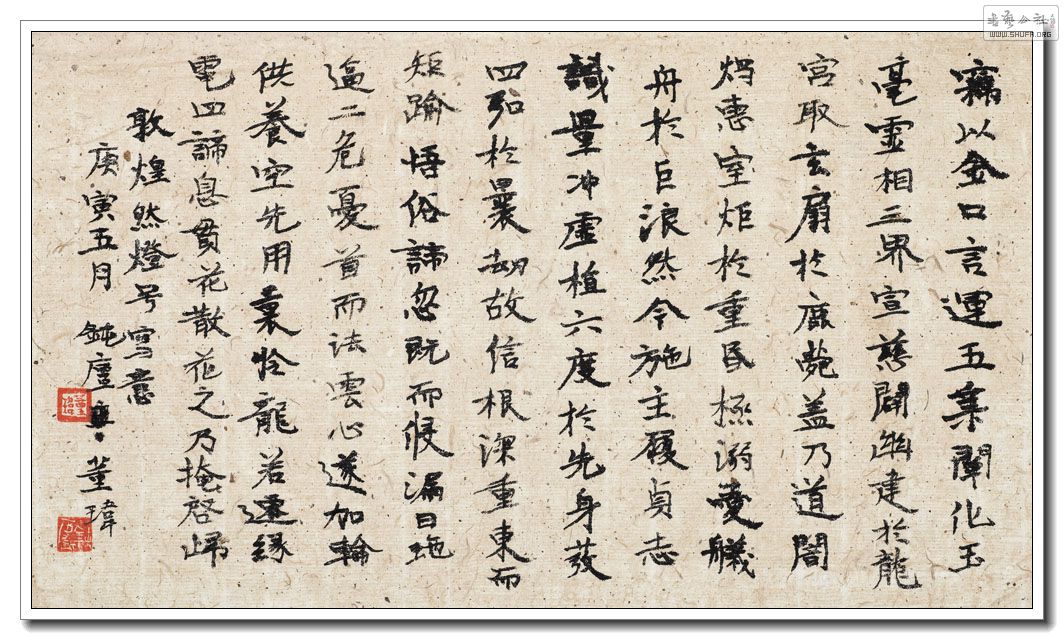 竊以金口言運五集闡化玉
毫靈相三界宣慈闢幽建於龍
宮取玄扇於鹿菀蓋乃道闇
燭惠室炬於重昏拯溺愛艤
舟於巨浪然今施主履貞志
識量冲虛植六度於先身發
四弘於曩劫故信根深重東而
矩踰悟俗諦忽既而侵漏日
逼二危憂首而法雲心遂加輪
供養空先用裏怜龍若運緣
電四諦息貫花散花之乃掩啓歸
敦煌然燈號寫意
庚寅五月 鈍廬 董瑋
書藝公社
WWW.SHUFA.ORG